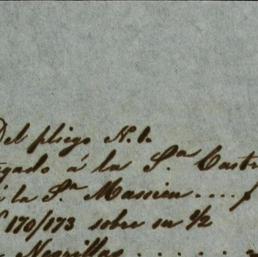 Del pliego N. 1.
gado á la S.ª Castr
á la S.ª Massieu .... f
170/173 sobre su 1/2
Negrillas ........